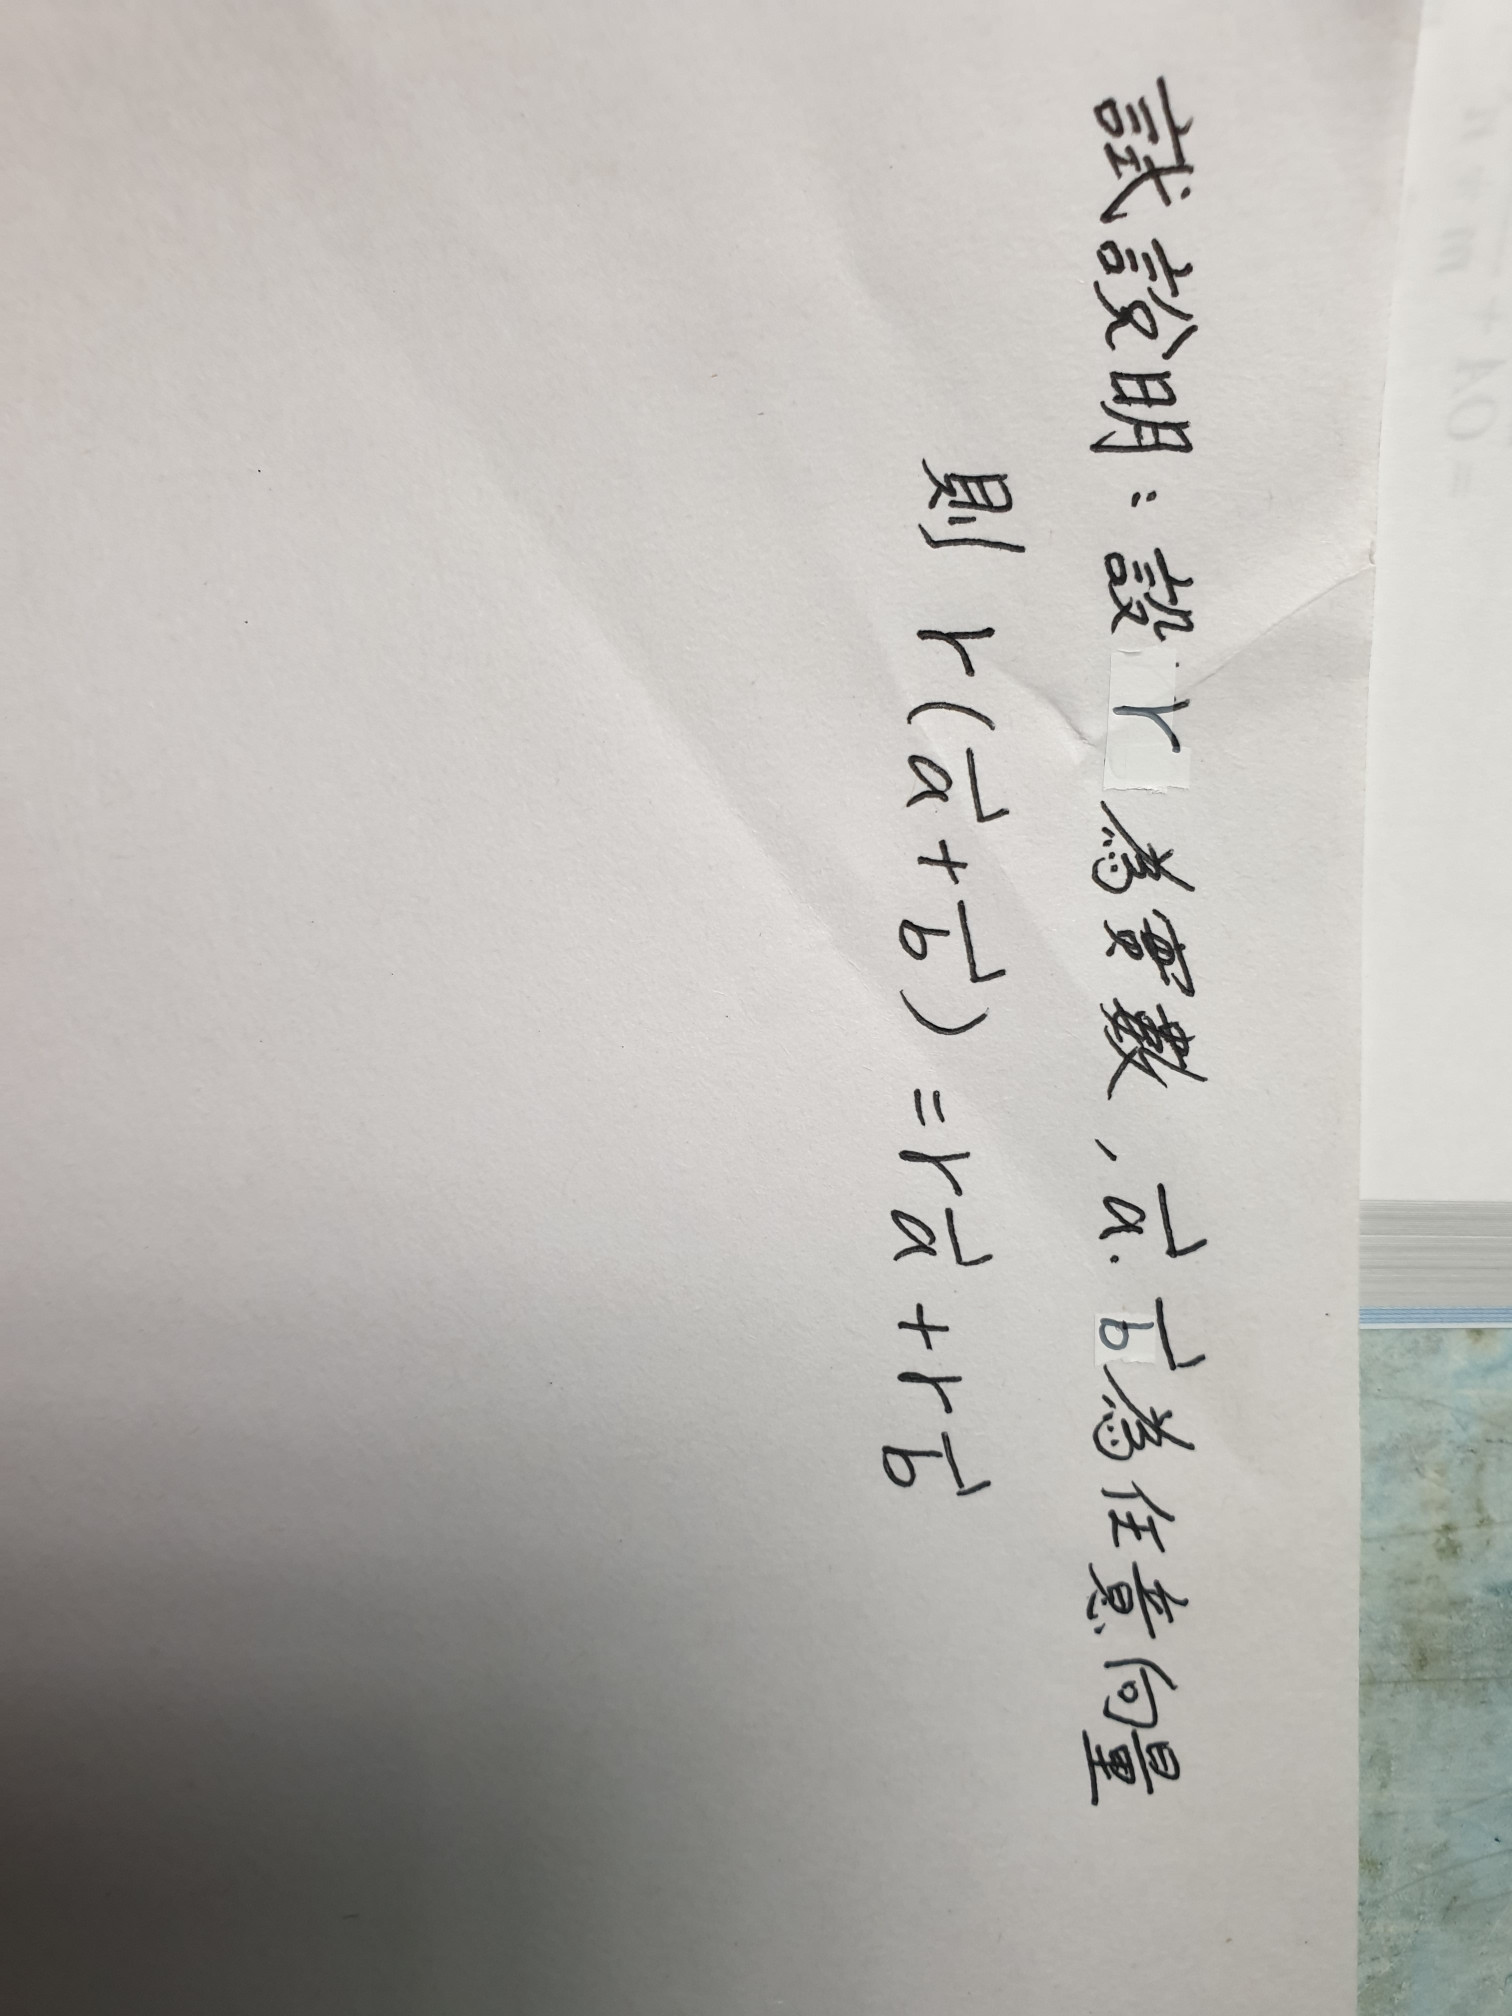 試說明：設 r 為實數，a⃗．b⃗ 為任意向量
則 r(a⃗+b⃗)=ra⃗+rb⃗